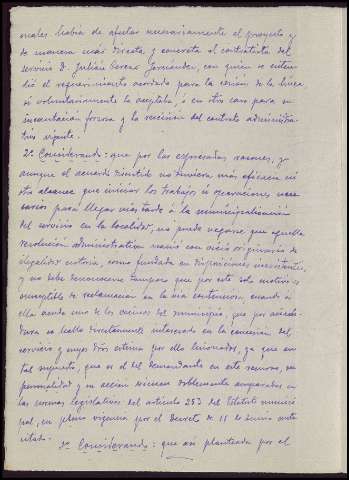 cuales había de afectar necesariamente el proyecto y
de manera más directa y concreta al contratista del
servicio D. Julián Cerezo Hernández, con quien se enten-
dió el requerimiento acordado para la cesión de la línea
si voluntariamente la aceptaba, o en otro caso para su
incautación forzosa y la rescisión del contrato administra-
tivo vigente.
2º Considerando: que por las expresadas razones, y
aunque el acuerdo no tuviera más eficacia ni
otro alcance que iniciar los trabajos u operaciones nece-
sarios para llegar más tarde á la municipalización
del servicio en la localidad, no puede negarse que aquella
resolución administrativa nació con vicio originario de
ilegalidad notoria, como fundada en disposiciones inexistentes,
y no debe desconocerse tampoco que por este solo motivo es
susceptible de reclamación en la vía contenciosa, cuando á
ella acude uno de los vecinos del municipio, que por
se halla directamente interesado en la concesión del
servicio y cuyos dros estima por ello lesionados, ya que en
tal supuesto, que es el del demandante en este recurso, su
personalidad y su acción vienen doblemente amparadas en
las normas legislativas del artículo 253 del Estatuto munici-
pal, en plena vigencia por el Decreto de 16 de Junio antes
citado.
3º Considerando: que así planteada por el